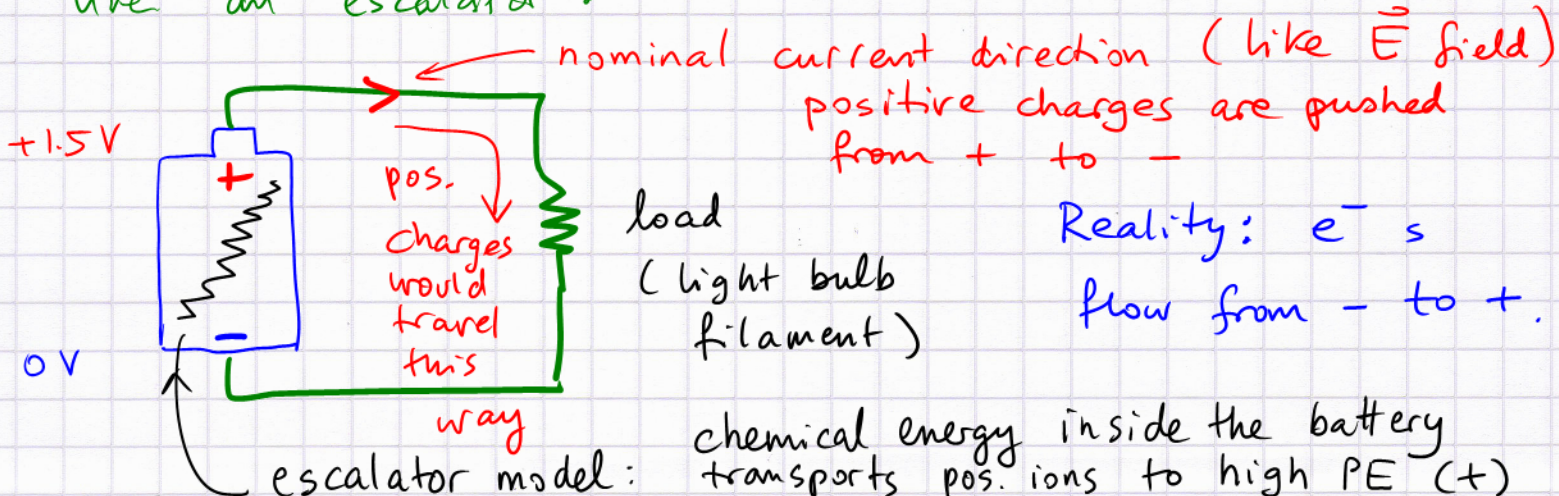 like an escalator.
nominal current direction (like E⃗ field)
positive charges are pushed
from + to −
+1.5 V
+
pos.
charges
would
travel
this
way
load
(light bulb
filament)
Reality: e⁻ s
flow from − to +.
−
0 V
chemical energy inside the battery
escalator model: transports pos. ions to high PE (+)